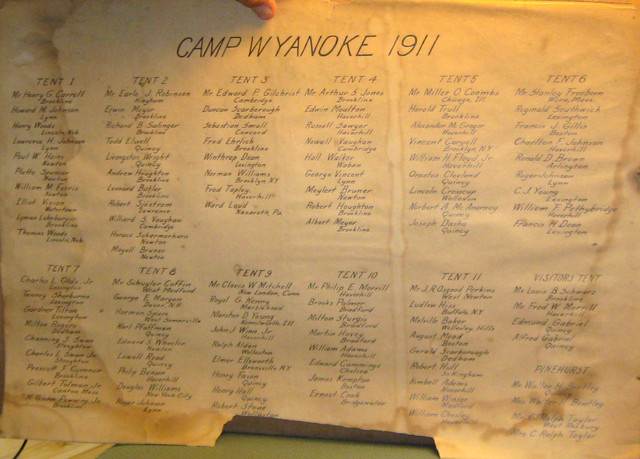 CAMP WYANOKE 1911
TENT 1
Mr Henry G. Carrell
Brookline
Howard M. Johnson
Lynn
Henry Woods
Lincoln, Neb.
Lawrence H. Johnson
Lynn
Paul W. Hains
Newton
Newton
William M. Ferris
Newton
Elliot
Watertown
Lyman
Brookline
Thomas Woods
Lincoln, Neb.
TENT 2
Mr Earle J. Robinson
Hingham
Erwin Meyer
Brookline
Richard B. Salinger
Brookline
Todd Elwell
Quincy
Livingston Wright
Quincy
Andrew Houghton
Brookline
Leonard Botler
Brookline
Robert Sjöstrom
Lawrence
Willard S. Vaughan
Cambridge
Horace Schermerhorn
Newton
Mayell Bruner
Newton
TENT 3
Mr Edward P. Gilchrist
Cambridge
Duncan Scarborough
Dedham
Sebastian Small
Concord
Fred Ehrlich
Brookline
Winthrop Dean
Lexington
Norman Williams
Brooklyn NY
Fred Tapley
Haverhill
Ward Loyd
Nazareth, Pa.
TENT 4
Mr Arthur S. Jones
Brookline
Edwin Moulton
Haverhill
Russell Sawyer
Haverhill
Newell Vaughan
Cambridge
Hall Walker
Waban
George Vincent
Lynn
Meylert Bruner
Newton
Robert Houghton
Brookline
Albert Meyer
Brookline
TENT 5
Mr Miller O Coombs
Chicago, Ill
Harold Trull
Brookline
Alexander McGregor
Haverhill
Vincent Gargell
Brooklyn, NY
William H. Floyd Jr.
Haverhill
Orestes Cleveland
Quincy
Lincoln Crowcup
Wollaston
Norbert A. McAnarney
Quincy
Joseph Dasha
Quincy
TENT 6
Mr Stanley Freeborn
Ware, Mass.
Reginald Southwick
Lexington
Francis J. Gillis
Boston
Charlton F. Johnson
Haverhill
Ronald D. Brown
Arlington
Roger Johnson
Lynn
C.J. Young
Lexington
William F. Pethybridge
Haverhill
Francis H. Dean
Lexington
TENT 7
Charles L. Olds, Jr.
Lexington
Tenney Sherburne
Lexington
Gardner Tilton
Lexington
Milton Rogers
Dedham
Channing J. Swan
Stoughton
Charles L. Swan Jr.
Stoughton
Prescott F.
Brookline
Gilbert Tolman Jr.
Canton Mass
Brookline
TENT 8
Mr Schuyler Coffin
West Medford
George E. Morgan
Devon, N.H.
Harmon Spear
West Somerville
Karl Pfaffman
Quincy
Edward S. Wheeler
Newton
Lowell Road
Quincy
Philip Bengan
Haverhill
Douglas Williams
New York City
Roger Johnson
Lynn
TENT 9
Mr Cleois W Mitchell
New London, Conn
Royal G. Nenny
Marblehead
Marston D. Young
John J. Wime Jr.
Haverhill
Ralph Alden
Wollaston
Elmer Ellsworth
Bronxville NY
Henry Faxon
Quincy
Henry Hall
Quincy
Robert Stone
Wollaston
TENT 10
Mr Philip E. Morrill
Haverhill
Brooks Palmer
Bradford
Milton Sturgis
Bradford
Martin Alvey
Bradford
William Adams
Haverhill
Edward Cummings
Chelsea
James Kempton
Sexton
Ernest Cook
Bridgewater
TENT 11
Mr J.R. Osgood Perkins
West Newton
Ludlow Hiss
Buffalo, N.Y.
Melville Baker
Wellesley Hills
August Mead
Boston
Gerald Scarborough
Dedham
Robert Hall
So Hingham
Kimball Adams
Haverhill
William Winsor
Medford
William Chesley
Haverhill
VISITORS TENT
Mr Louis B. Schwarz
Brookline
Mr Fred W. Morrill
Haverhill
Edmund Gabriel
Quincy
Alfred Gabriel
Quincy
PINEHURST
Mr Walter H. Bentley
Quincy
Mrs Walter H. Bentley
Mr C. Ralph Taylor
West Roxbury
Mrs C. Ralph Taylor